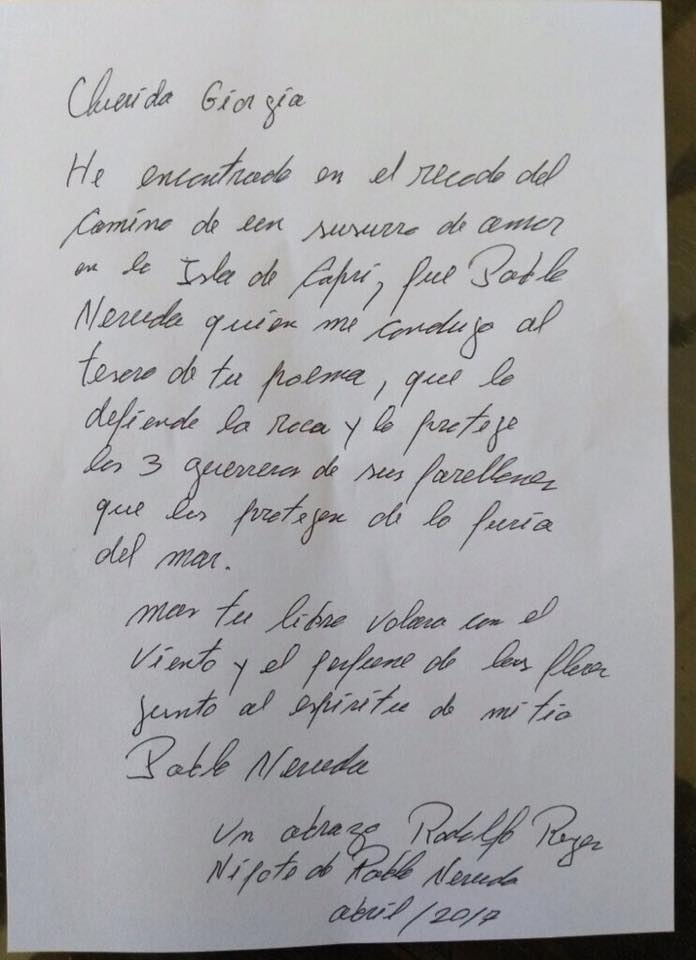 Querida Giorgia
He encontrado en el recodo del
camino de un susurro de amor
en la Isla de Capri, fue Pablo
Neruda quien me condugo al
tesoro de tu poema, que lo
defiende la roca y lo protege
los 3 guerreros de sus farellones
que los protegen de la furia
del mar.
mas tu libro volara con el
viento y el perfume de las flores
junto al espiritu de mi tio
Pablo Neruda
Un abrazo Rodolfo Reyes
Nipote de Pablo Neruda
abril/2017